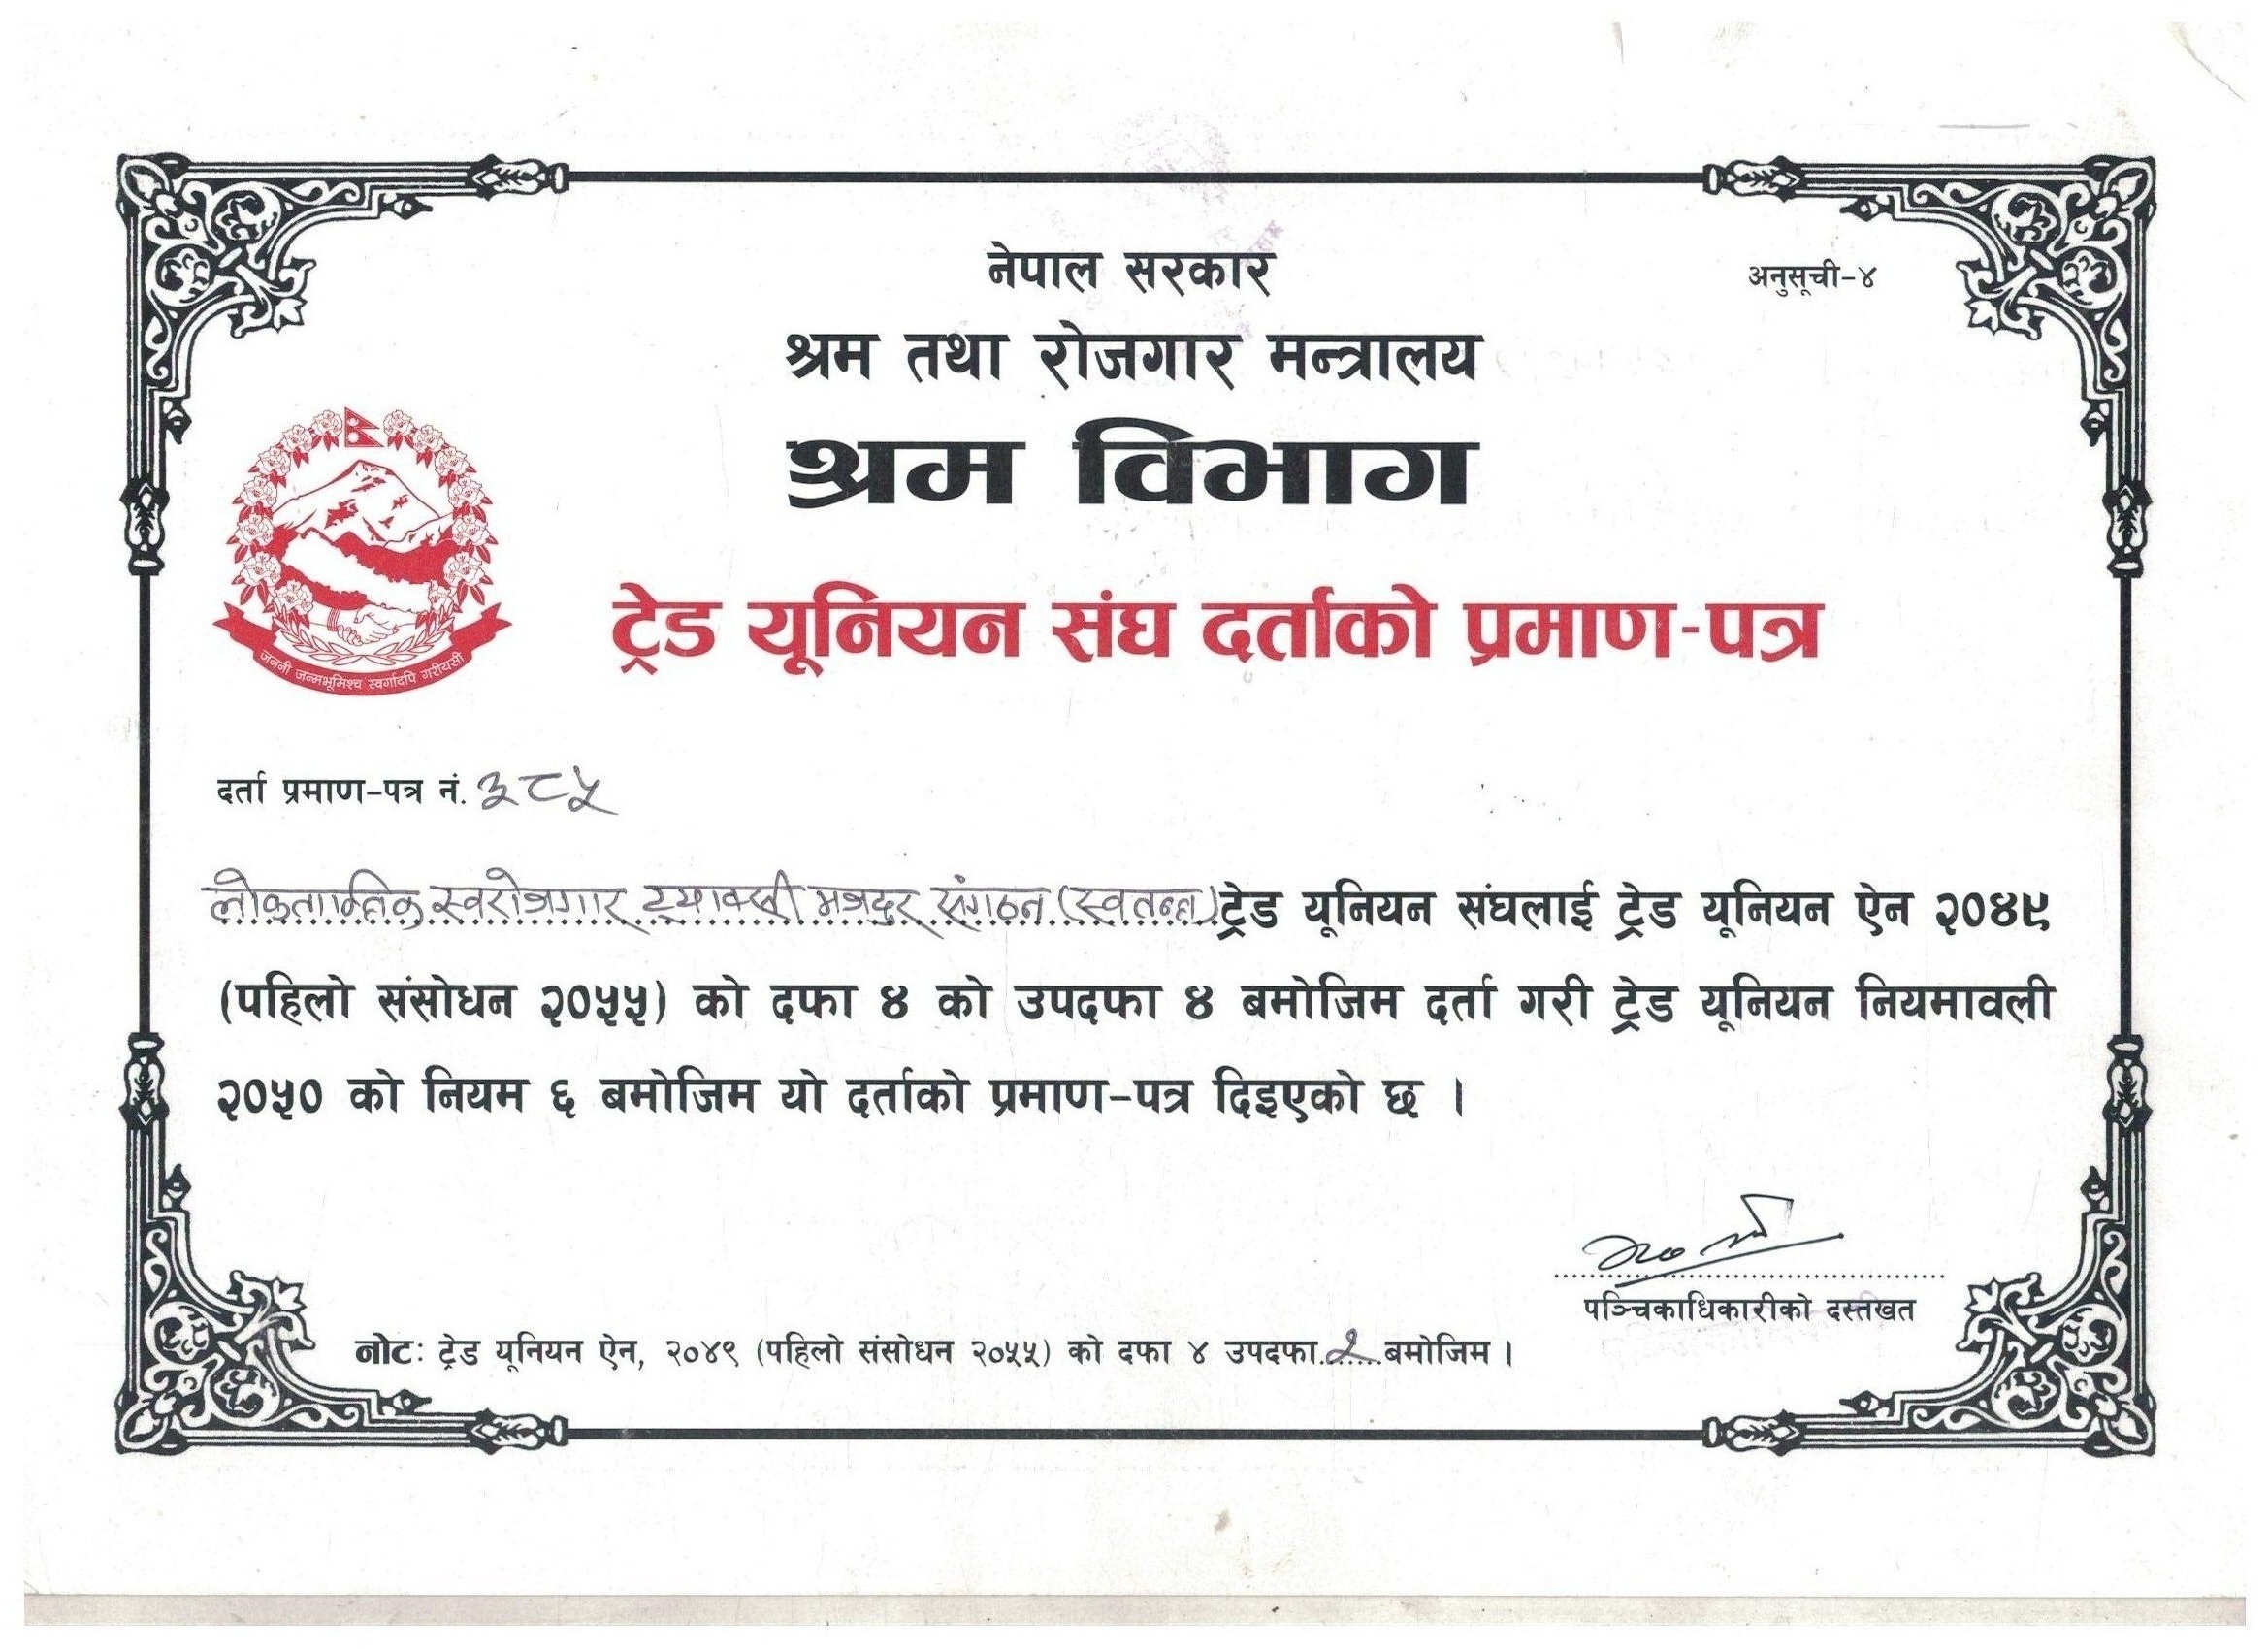 नेपाल सरकार
अनुसूची-४
श्रम तथा रोजगार मन्त्रालय
श्रम विभाग
ट्रेड यूनियन संघ दर्ताको प्रमाण-पत्र
जननी जन्मभूमिश्च स्वर्गादपि गरीयसी
दर्ता प्रमाण-पत्र नं. ३८५
लोकतान्त्रिक स्वरोजगार ट्याक्सी मजदुर संगठन (स्वतन्त्र) ट्रेड यूनियन संघलाई ट्रेड यूनियन ऐन २०४९
(पहिलो संसोधन २०५५) को दफा ४ को उपदफा ४ बमोजिम दर्ता गरी ट्रेड यूनियन नियमावली
२०५० को नियम ६ बमोजिम यो दर्ताको प्रमाण-पत्र दिइएको छ ।
पञ्चिकाधिकारीको दस्तखत
नोट: ट्रेड यूनियन ऐन, २०४९ (पहिलो संसोधन २०५५) को दफा ४ उपदफा २ बमोजिम ।